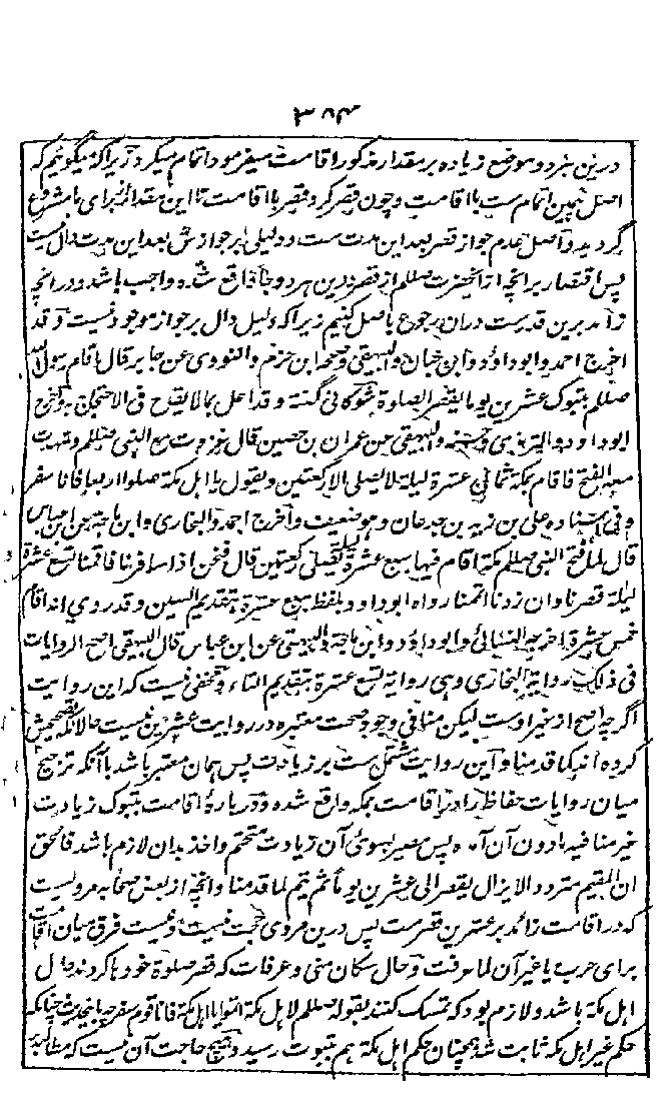 ۳۸۴
درین سفر دو موضع زیاده بر مقدار مذکور اقامت میفرمود اتمام میکرد زیرا که میگوئیم که
اصل مقیم اتمام ست با اقامت و چون قصر کرد و قصر با اقامت تا این مقدار برای ما مشروع
گردید و اصل عدم جواز قصر بعد این مدت ست و دلیلی بر جوازش بعد این مدت دال نیست
پس اقتصار بر انچه از آنحضرت صلعم از قصر درین هر دو جا واقع شده واجب باشد و در انچه
زائد برین قدرست دران رجوع باصل کنیم زیرا که دلیل دال بر جواز موجود نیست و قد
اخرج احمد و ابوداؤد و ابن حبان والبیهقی وصححه ابن حزم والنووی عن جابر قال اقام رسول الله
صلعم بتبوک عشرین یوما یقصر الصلوة شوکانی گفته و قد اعل بما لا یقدح فی الاحتجاج به واخرج
ابوداود والترمذی وحسنه والبیهقی عن عمران بن حصین قال غزوت مع النبی صلعم وشهدت
معه الفتح فاقام بمکة ثمانی عشرة لیلة لا یصلی الا رکعتین ویقول یا اهل مکة صلوا اربعا فانا سفر
وفی اسناده علی بن زید بن جدعان وهو ضعیف واخرج احمد والبخاری وابن ماجة عن ابن عباس
قال لما فتح النبی صلعم مکة اقام فیها تسع عشرة لیلة یصلی رکعتین قال فنحن اذا سافرنا فاقمنا تسع عشرة
لیلة قصرنا وان زدنا اتممنا رواه ابوداود وبلفظ سبع عشرة بتقدیم السین وقد روی انه اقام
خمس عشرة اخرجه النسائی وابوداؤد وابن ماجة والبیهقی عن ابن عباس قال البیهقی اصح الروایات
فی ذلک روایة البخاری وهی روایة تسع عشرة بتقدیم التاء و مخفی نیست که این روایت
اگرچه اصح از غیر اوست لیکن منافی وجود صحت معتبره در روایت عشرین نیست حالانکه تصحیحش
کرده اند کما قدمنا و این روایت مشتمل ست بر زیادت پس همان معتبر باشد با آنکه ترجیح
میان روایات حفاظ را در اقامت بمکه واقع شده و دربارهٔ اقامت بتبوک زیادت
غیر منافیه بدون آن آمده پس مصیر بسوی آن زیادت متحتم و اخذ بدان لازم باشد فالحق
ان المقیم متردد الا یزال یقصر الی عشرین یوما ثم یتم لما قدمنا و انچه از بعض صحابه مرویست
که در اقامت زائد بر عشرین قصرست پس درین مروی حجت نیست و نیست فرق میان اقامت
برای حرب یا غیر آن لما عرفت و حال سکان منی و عرفات که قصر صلوة خود با کردند حال
اهل مکه باشد و لازم بود که تمسک کنند بقوله صلعم لاهل مکة اتموا یا اهل مکة فانا قوم سفر چه باینحدیث چنانکه
حکم غیر اهل مکه ثابت شد همچنان حکم اهل مکه هم بثبوت رسید و هیچ حاجت آن نیست که